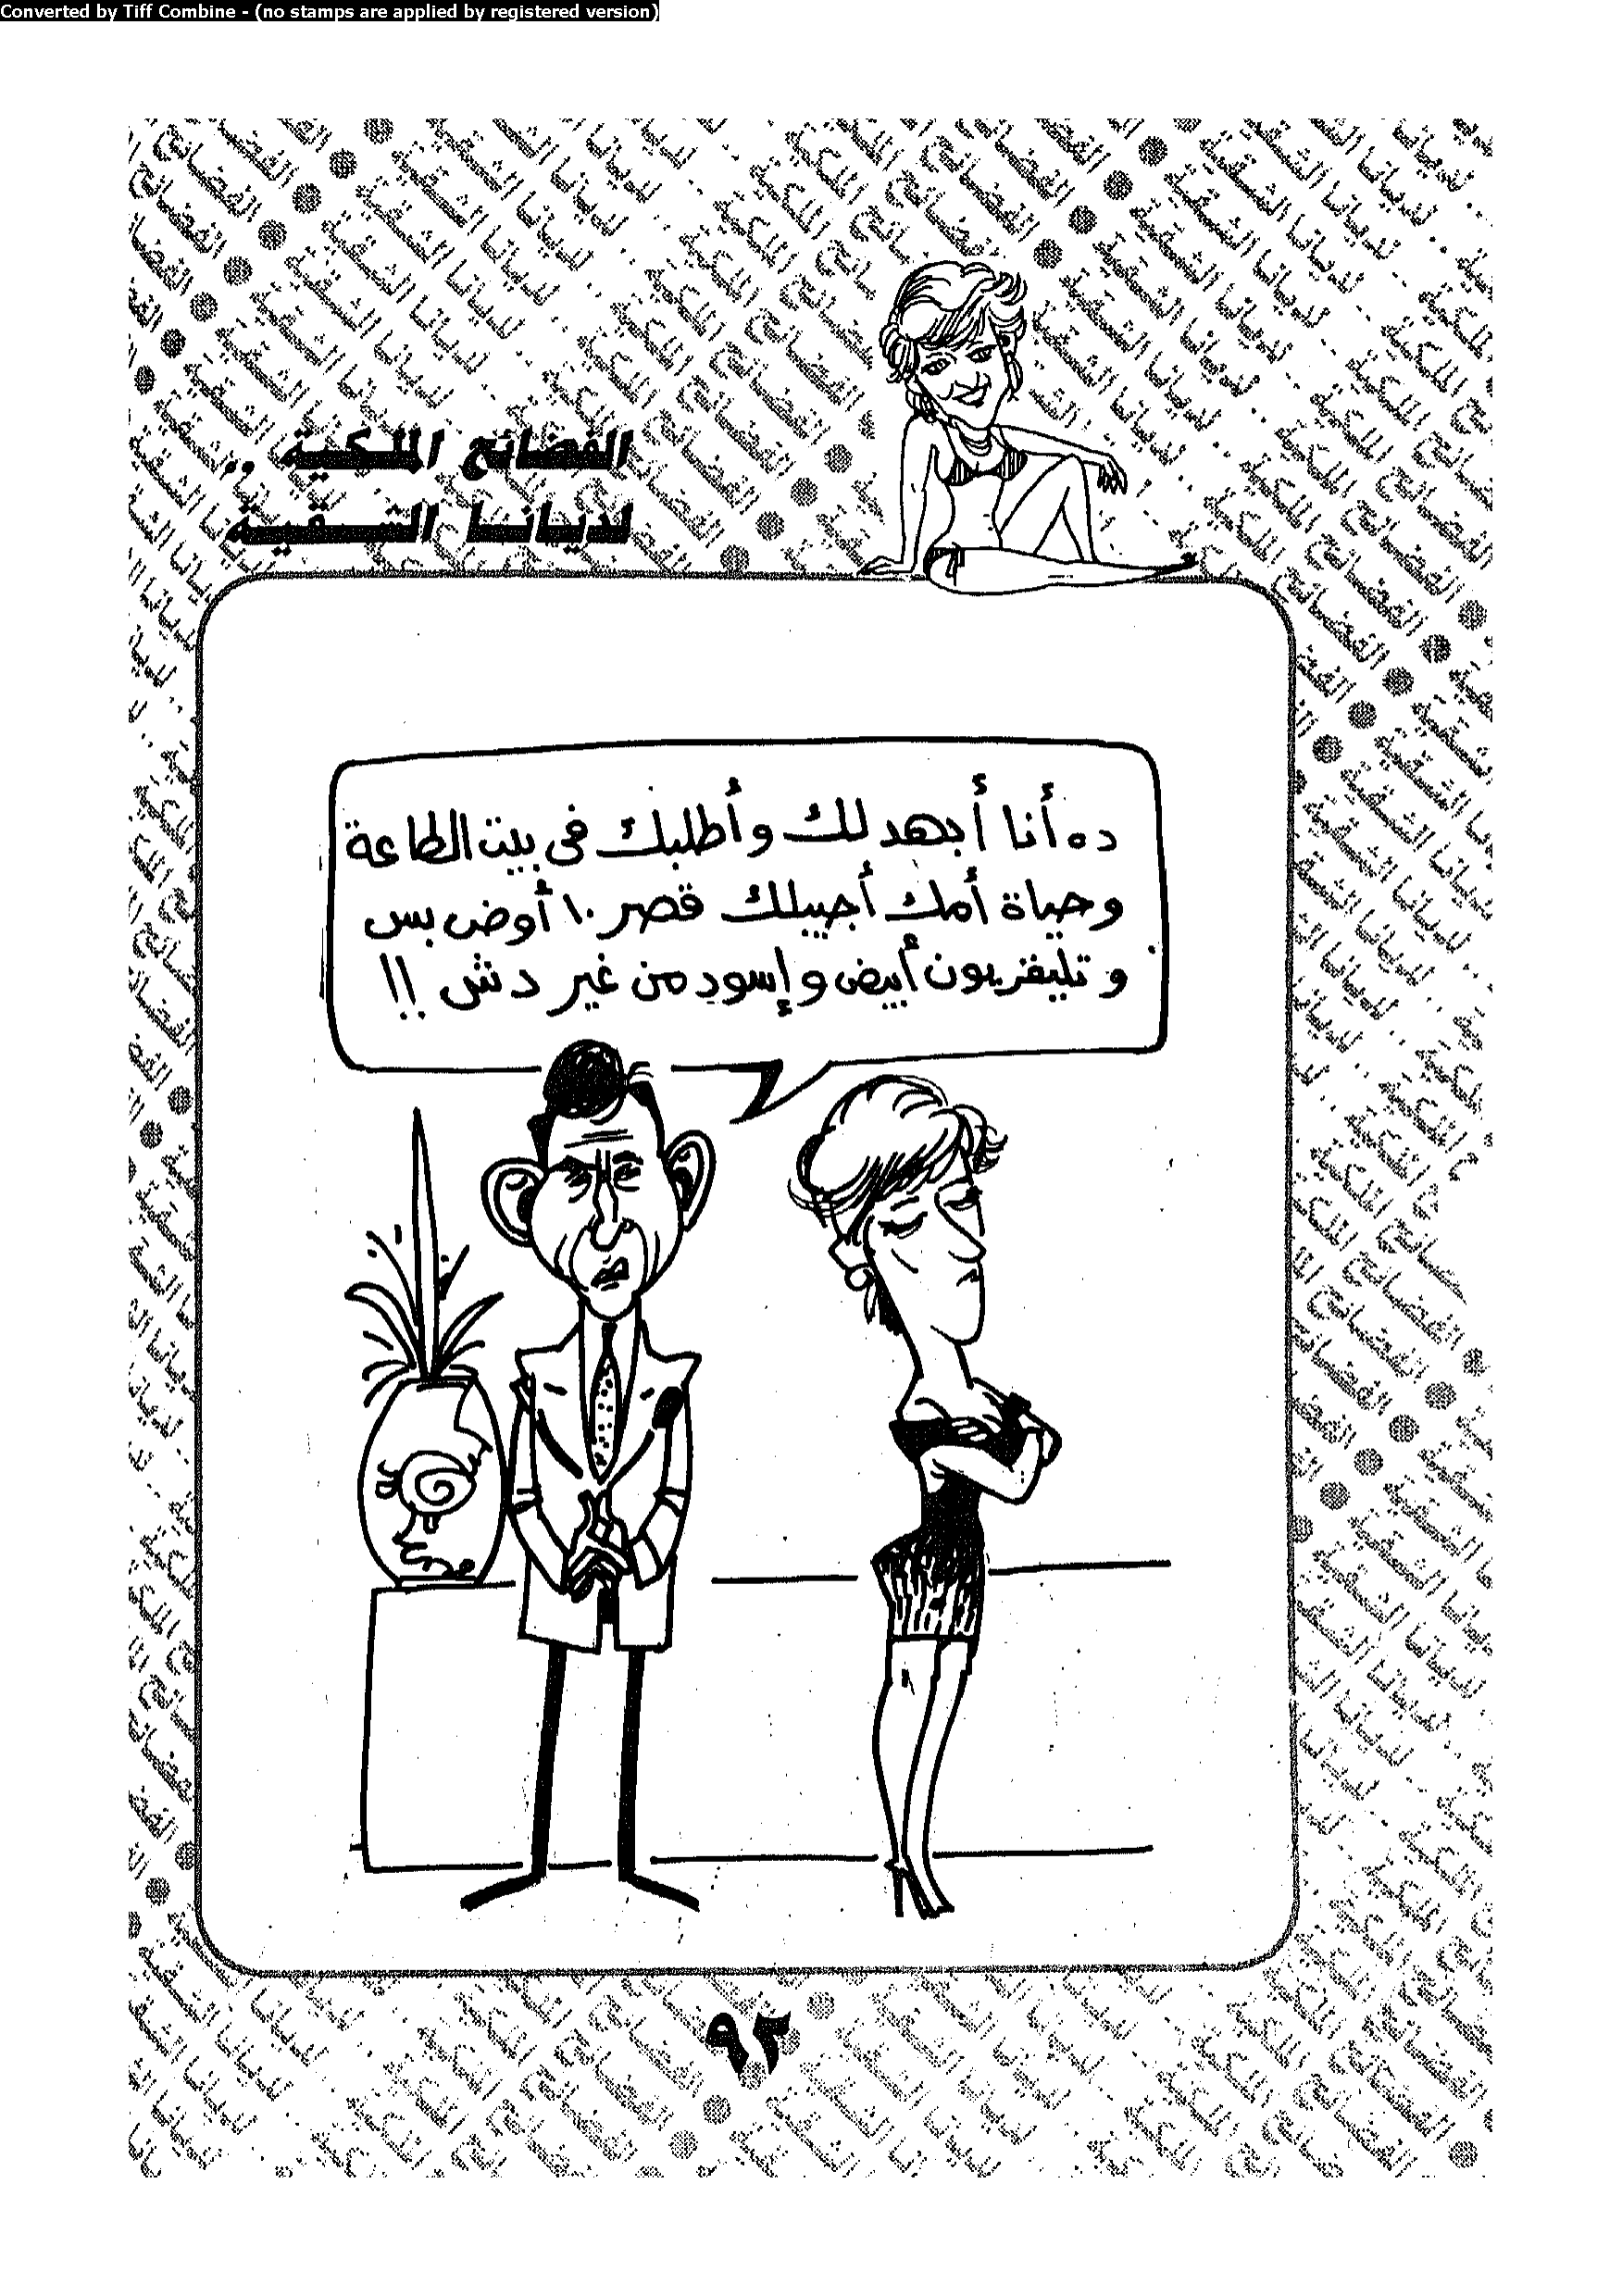 Converted by Tiff Combine - (no stamps are applied by registered version)
الفضائح الملكية ..
لديانا الشقية
ده أنا أبهدلك وأطلبك فى بيت الطاعة
وحياة أمك أجيبلك قصر ١٠ أوض بس
وتليفزيون أبيض وإسود من غير دش !!
٩٢